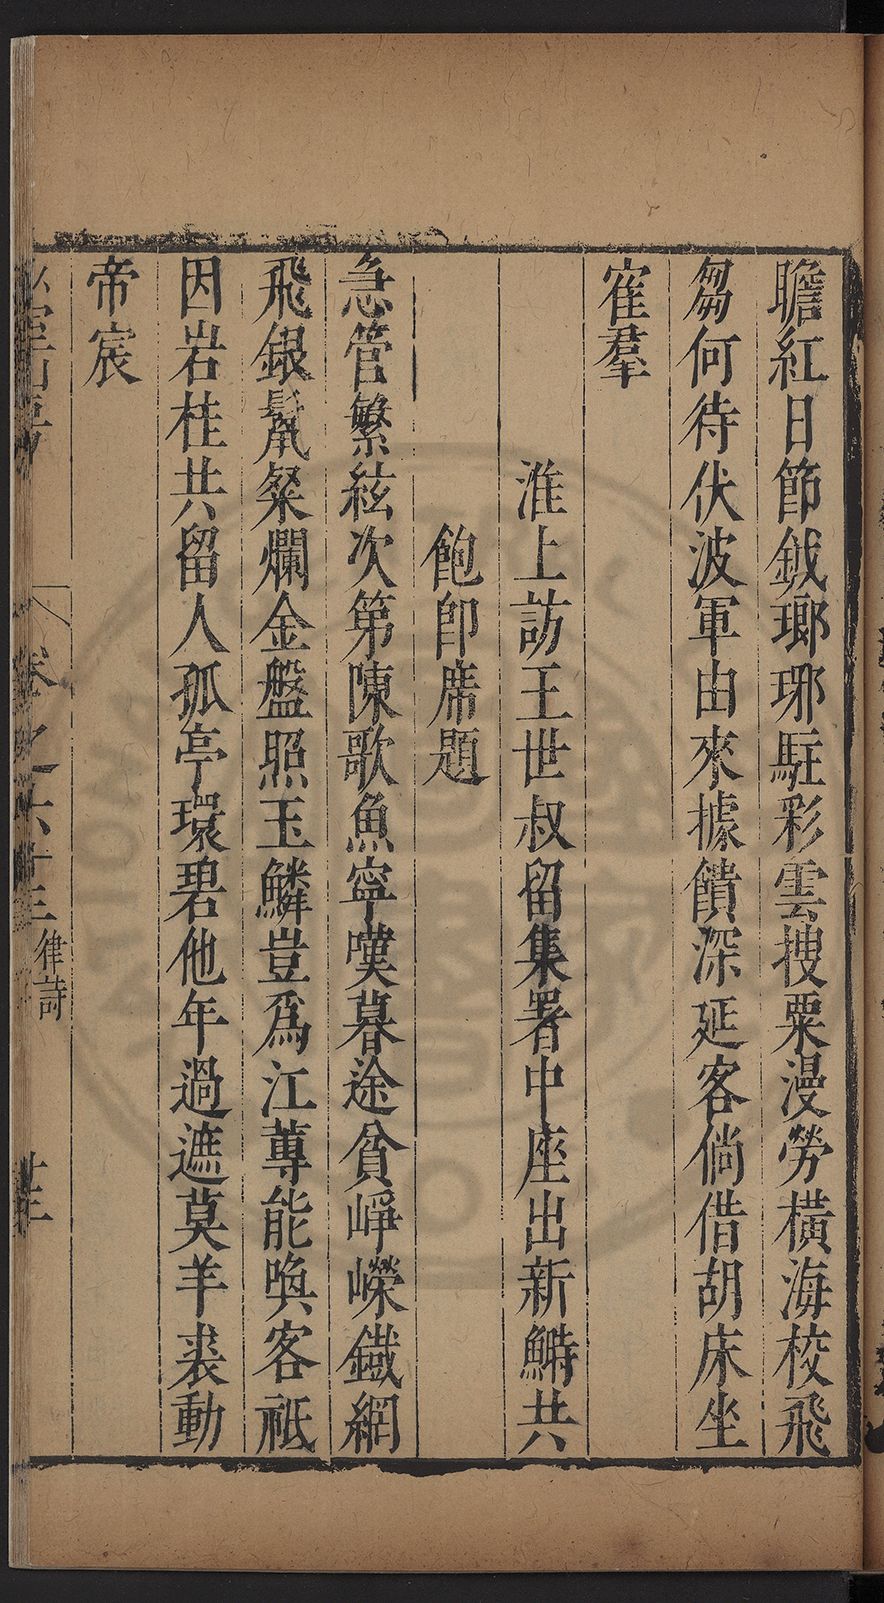 瞻紅日節鉞瑯琊駐彩雲搜粟漫勞橫海校飛
芻何待伏波軍由來據饋深延客倘借胡床坐
寉羣
淮上訪王世叔留集署中座出新鰣共
飽卽席題
急管繁絃次第陳歌魚寧嘆暮途貧崢嶸鐵網
飛銀鬣粲爛金盤照玉鱗豈爲江蓴能喚客祗
因岩桂共留人孤亭環碧他年過遮莫羊裘動
帝宸
卷之六十三 律詩